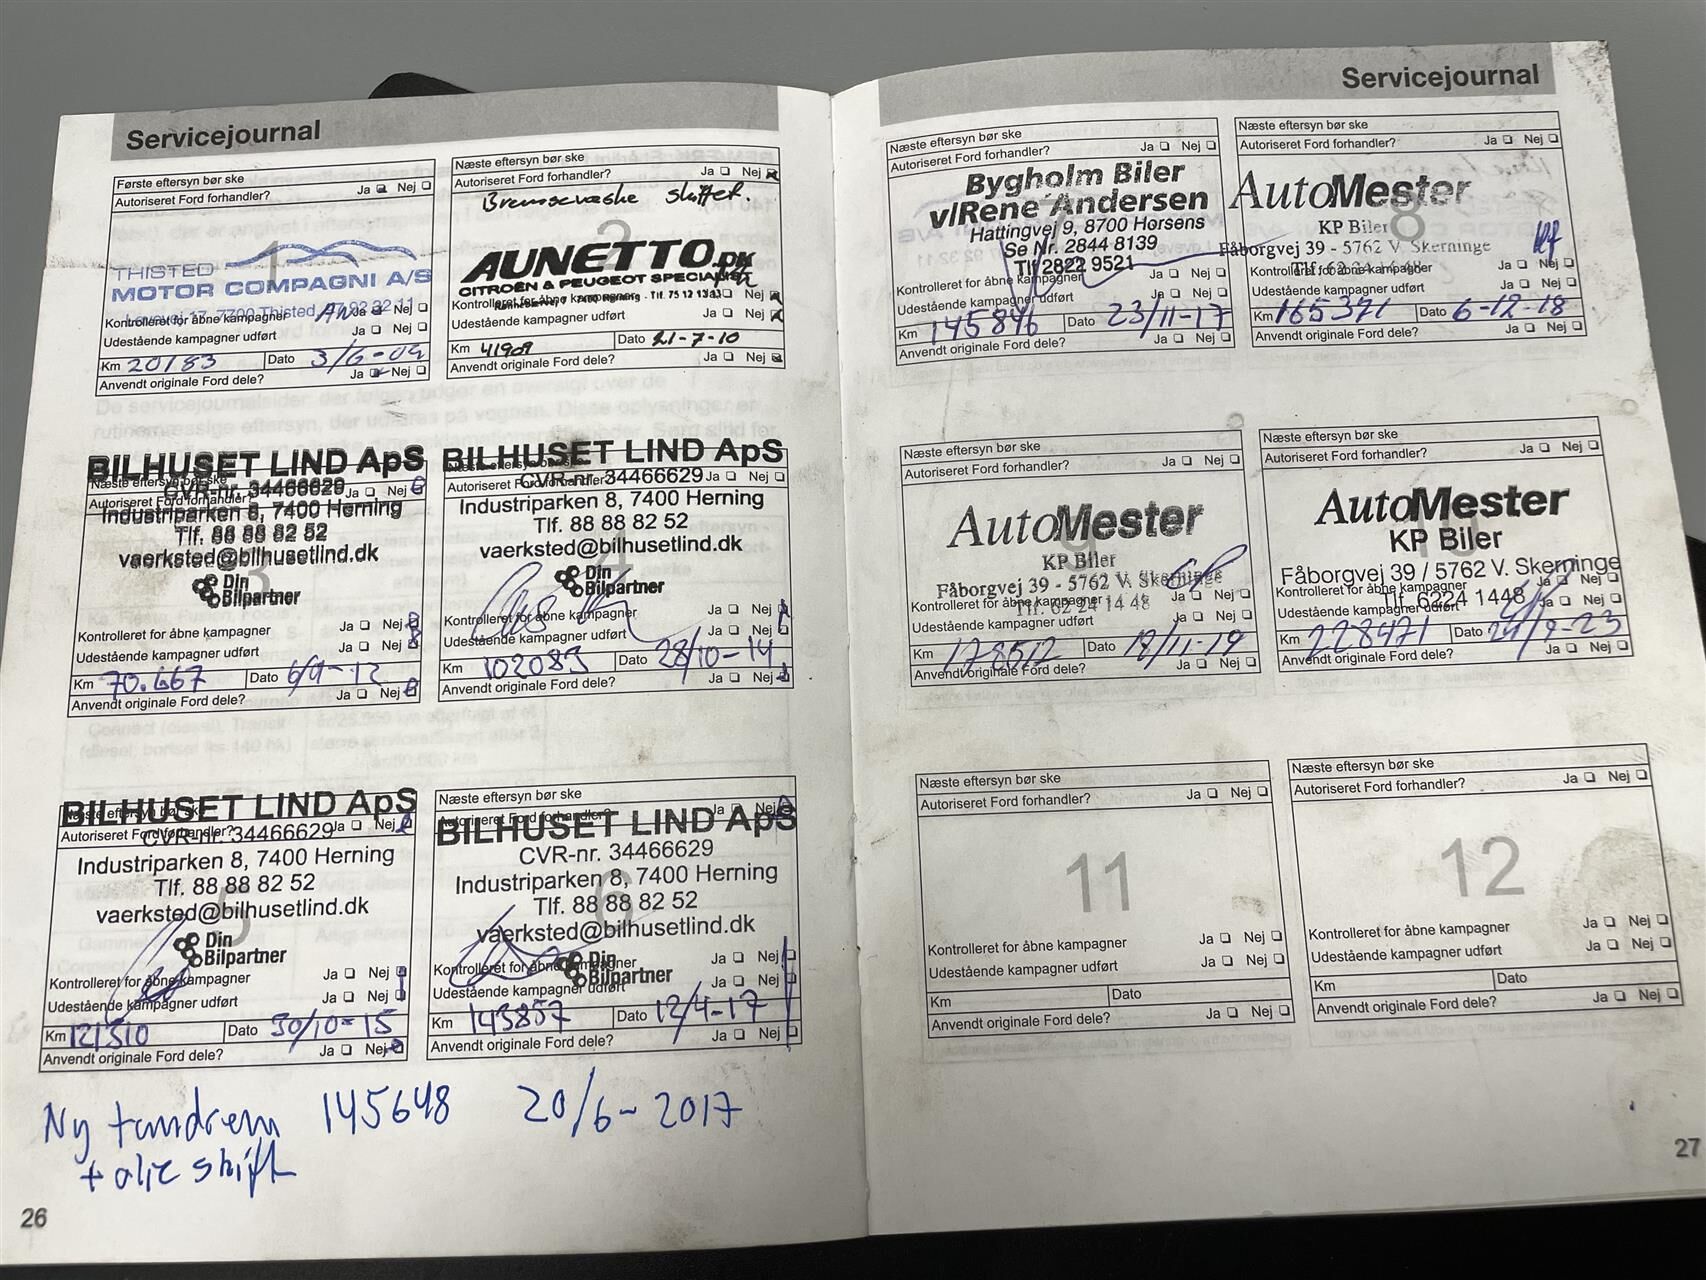 Servicejournal
Første eftersyn bør ske
Autoriseret Ford forhandler? Ja Nej
1
THISTED
MOTOR COMPAGNI A/S
7700 Thisted
Kontrolleret for åbne kampagner Ja Nej
Udestående kampagner udført Ja Nej
Km 20183 Dato 3/6-09
Anvendt originale Ford dele? Ja Nej
Næste eftersyn bør ske
Autoriseret Ford forhandler? Ja Nej
Bremsevæske skiftet.
2
AUNETTO.DK
CITROËN & PEUGEOT SPECIALIST
Tlf. 75 12 13 13
Kontrolleret for åbne kampagner Ja Nej
Udestående kampagner udført Ja Nej
Km 41909 Dato 21-7-10
Anvendt originale Ford dele? Ja Nej
BILHUSET LIND ApS
Næste eftersyn bør ske
CVR-nr. 34466629
Autoriseret Ford forhandler? Ja Nej
Industriparken 8, 7400 Herning
Tlf. 88 88 82 52
vaerksted@bilhusetlind.dk
3
Din
Bilpartner
Kontrolleret for åbne kampagner Ja Nej
Udestående kampagner udført Ja Nej
Km 70.667 Dato 6/9-12
Anvendt originale Ford dele? Ja Nej
BILHUSET LIND ApS
Næste eftersyn bør ske
CVR-nr. 34466629
Autoriseret Ford forhandler? Ja Nej
Industriparken 8, 7400 Herning
Tlf. 88 88 82 52
vaerksted@bilhusetlind.dk
4
Din
Bilpartner
Kontrolleret for åbne kampagner Ja Nej
Udestående kampagner udført Ja Nej
Km 102083 Dato 28/10-14
Anvendt originale Ford dele? Ja Nej
BILHUSET LIND ApS
Næste eftersyn bør ske
Autoriseret Ford forhandler? Ja Nej
CVR-nr. 34466629
Industriparken 8, 7400 Herning
Tlf. 88 88 82 52
vaerksted@bilhusetlind.dk
5
Din
Bilpartner
Kontrolleret for åbne kampagner Ja Nej
Udestående kampagner udført Ja Nej
Km 121310 Dato 30/10-15
Anvendt originale Ford dele? Ja Nej
Næste eftersyn bør ske
Autoriseret Ford forhandler? Ja Nej
BILHUSET LIND ApS
CVR-nr. 34466629
Industriparken 8, 7400 Herning
6
Tlf. 88 88 82 52
vaerksted@bilhusetlind.dk
Din
Bilpartner
Kontrolleret for åbne kampagner Ja Nej
Udestående kampagner udført Ja Nej
Km 143857 Dato 12/4-17
Anvendt originale Ford dele? Ja Nej
Ny tandrem 145648 20/6-2017
+ olie skift
26
Servicejournal
Næste eftersyn bør ske
Autoriseret Ford forhandler? Ja Nej
Bygholm Biler
v/Rene Andersen
7
Hattingvej 9, 8700 Horsens
Se Nr. 2844 8139
Tlf 2822 9521
Kontrolleret for åbne kampagner Ja Nej
Udestående kampagner udført Ja Nej
Km 145846 Dato 23/11-17
Anvendt originale Ford dele? Ja Nej
Næste eftersyn bør ske
Autoriseret Ford forhandler? Ja Nej
AutoMester
8
KP Biler
Fåborgvej 39 - 5762 V. Skerninge
Kontrolleret for åbne kampagner Ja Nej
Udestående kampagner udført Ja Nej
Km 165371 Dato 6-12-18
Anvendt originale Ford dele? Ja Nej
Næste eftersyn bør ske
Autoriseret Ford forhandler? Ja Nej
AutoMester
9
KP Biler
Fåborgvej 39 - 5762 V. Skerninge
Tlf. 62 24 14 48
Kontrolleret for åbne kampagner Ja Nej
Udestående kampagner udført Ja Nej
Km 178512 Dato 18/11-19
Anvendt originale Ford dele? Ja Nej
Næste eftersyn bør ske
Autoriseret Ford forhandler? Ja Nej
AutoMester
10
KP Biler
Fåborgvej 39 / 5762 V. Skerninge
Tlf. 6224 1448
Kontrolleret for åbne kampagner Ja Nej
Udestående kampagner udført Ja Nej
Km 228471 Dato 29/9-23
Anvendt originale Ford dele? Ja Nej
Næste eftersyn bør ske
Autoriseret Ford forhandler? Ja Nej
11
Kontrolleret for åbne kampagner Ja Nej
Udestående kampagner udført Ja Nej
Km Dato
Anvendt originale Ford dele? Ja Nej
Næste eftersyn bør ske
Autoriseret Ford forhandler? Ja Nej
12
Kontrolleret for åbne kampagner Ja Nej
Udestående kampagner udført Ja Nej
Km Dato
Anvendt originale Ford dele? Ja Nej
27